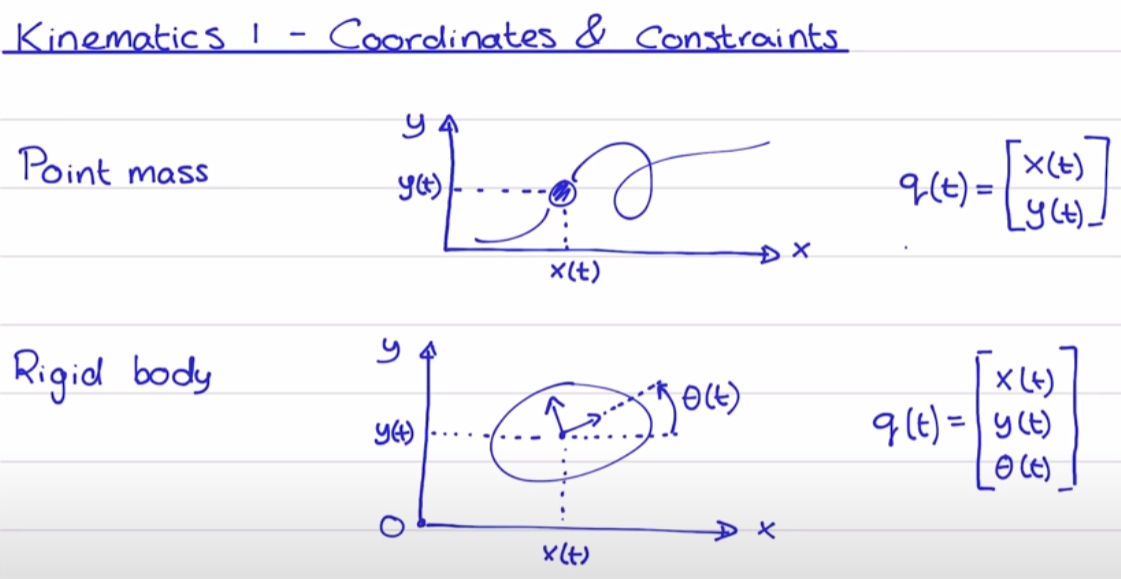 Kinematics 1 - Coordinates & Constraints
Point mass
y
y(t)
x(t)
x
q(t) = [x(t)
y(t)]
Rigid body
y
y(t)
θ(t)
O
x(t)
x
q(t) = [x(t)
y(t)
θ(t)]